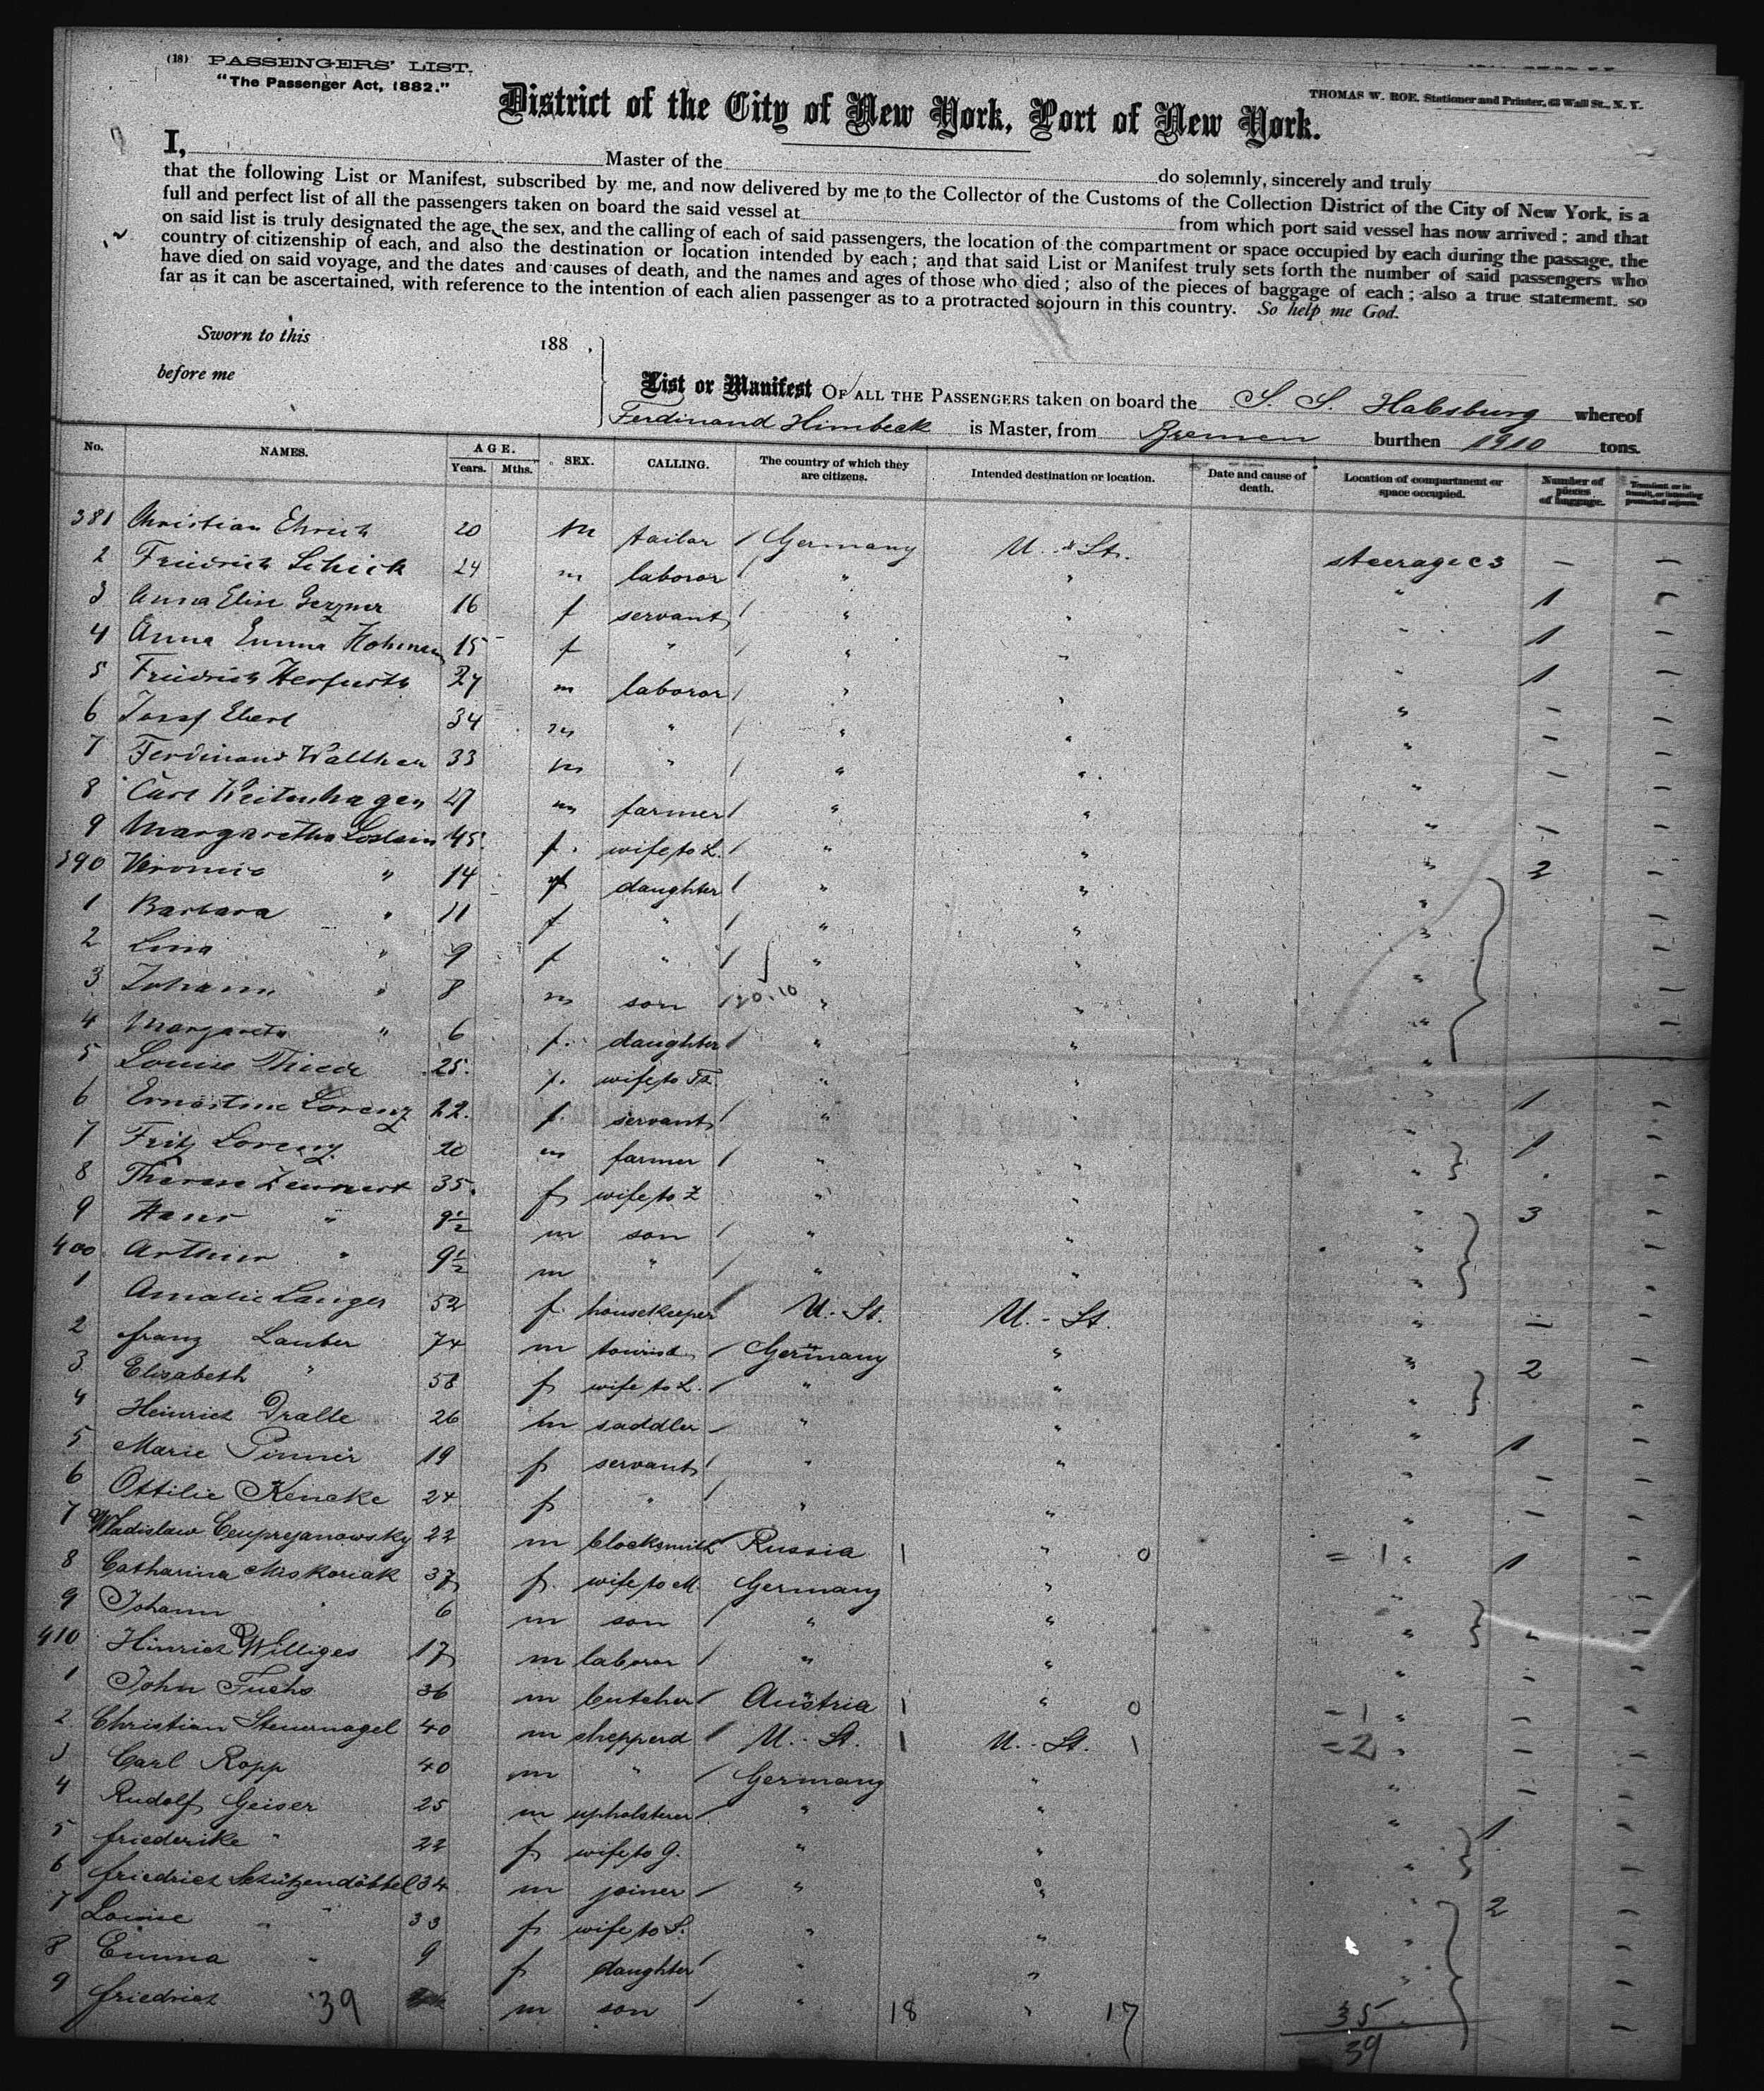 (18) PASSENGERS' LIST.
"The Passenger Act, 1882."
THOMAS W. ROE, Stationer and Printer, 63 Wall St., N. Y.
District of the City of New York, Port of New York.
I, Master of the do solemnly, sincerely and truly
that the following List or Manifest, subscribed by me, and now delivered by me to the Collector of the Customs of the Collection District of the City of New York, is a
full and perfect list of all the passengers taken on board the said vessel at from which port said vessel has now arrived; and that
on said list is truly designated the age, the sex, and the calling of each of said passengers, the location of the compartment or space occupied by each during the passage, the
country of citizenship of each, and also the destination or location intended by each; and that said List or Manifest truly sets forth the number of said passengers who
have died on said voyage, and the dates and causes of death, and the names and ages of those who died; also of the pieces of baggage of each; also a true statement, so
far as it can be ascertained, with reference to the intention of each alien passenger as to a protracted sojourn in this country. So help me God.
Sworn to this 188 ,
before me
List or Manifest OF ALL THE PASSENGERS taken on board the S. S. Habsburg whereof
Ferdinand Himbeck is Master, from Bremen burthen 1910 tons.
No. NAMES. AGE. Years. Mths. SEX. CALLING. The country of which they are citizens. Intended destination or location. Date and cause of death. Location of compartment or space occupied. Number of pieces of baggage. Transient or in transit, or intending protracted sojourn.
381 Christian Ehrich 20 m tailor / Germany U. St. steerage c 3 — —
2 Friedrich Schick 24 m laboror / " " " 1 —
3 Anna Elise 16 f servant / " " " 1 —
4 Anna Emma 15 f " / " " " 1 —
5 Friedrich Herfurth 27 m laboror / " " " — —
6 Josef Ebert 34 m " / " " " — —
7 Ferdinand Walther 33 m " / " " " — —
8 Carl Weitenhagen 27 m farmer / " " " — —
9 Margaretha 45 f. wife to L. / " " " 2 —
390 Veronic " 14 f daughter / " " " —
1 Barbara " 11 f " / " " " —
2 Lina " 9 f " / " " " —
3 Johann " 8 m son / 20.10 " " " —
4 Margareta " 6 f. daughter / " " " —
5 Louise Thiede 25. f. wife to Th. " " " 1 —
6 Ernestine Lorenz 22. f servant / " " " 1 —
7 Fritz Lorenz 20 m farmer / " " " —
8 Therese Zennert 35. f wife to Z " " " 3 —
9 Hans " 9½ m son / " " " —
400 Arthur " 9½ m " / " " " —
1 Amalie Langer 52 f. housekeeper / U. St. U. - St. " — —
2 Franz Lauber 74 m tourist / Germany " " 2 —
3 Elisabeth " 58 f wife to L. / " " " —
4 Heinrich Dralle 26 m saddler / " " " 1 —
5 Marie Pinner 19 f servant / " " " — —
6 Ottilie Kencke 24 f " / " " " — —
7 Wladislaw Ceupreganowsky 22 m blocksmith / Russia 1 " 0 = 1 " 1 —
8 Catharina Miskoriak 37 f. wife to M. Germany " " —
9 Johann " 6 m son / " " " " —
410 Hinrich Williges 17 m laboror / " " " — —
1 John Fuchs 36 m butcher / Austria 1 " 0 - 1 " — —
2 Christian Steuernagel 40 m shepperd / U. - St. 1 U. - St. 1 = 2 " — —
3 Carl Ropp 40 m " / Germany " " — —
4 Rudolf Geiser 25 m upholsterer / " " " 1 —
5 Friederike " 22 f wife to G. " " " —
6 Friedrich Schützendöbbel 34 m joiner / " " " 2 —
7 Louise " 33 f wife to S. " " " —
8 Emma " 9 f daughter / " " " —
9 Friedrich 39 m son / " 18 " 17 35 —
39